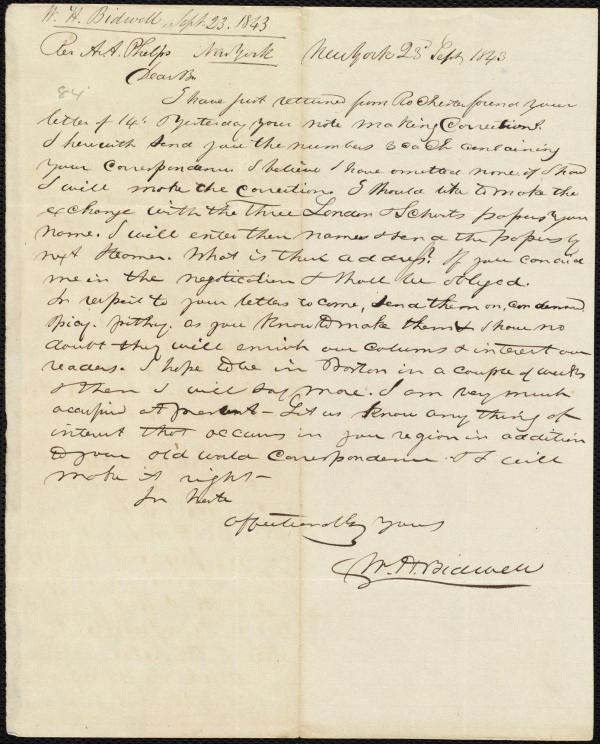 W. H. Bidwell. Sept. 23. 1843
Rev A. A. Phelps New York New York 23d Sept 1843
Dear Br.
84
I have just returned from Rochester found your
letter of 14th & yesterday your note making corrections.
I herewith send you the numbers 3 each containing
your correspondence I believe I have omitted none if I have
I will make the corrections I should like to make the
exchange with the three London papers & your
name. I will enter their names & send the papers by
next steamer. What is their address? If you can aid
me in the negotiation I shall be obliged.
In respect to your letters to come, send them on, condensed
spicy. pithy. as you know to make them & I have no
doubt they will enrich our columns & interest our
readers. I hope to be in Boston in a couple of weeks
& then I will say more. I am very much
occupied at present - Let us know any thing of
interest that occurs in your region in addition
to your old world correspondence & I will
make it right -
In haste
affectionately yours
W. H. Bidwell